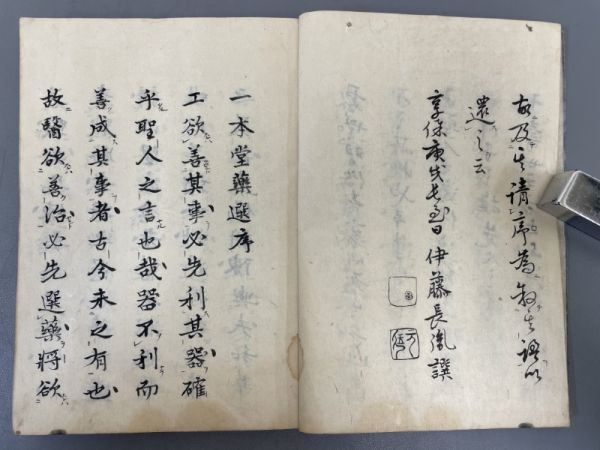 故及其請序為敘其以
還之云
享保庚戌長至日 伊藤長胤譔
一本堂藥選序
工欲善其事必先利其器確
乎聖人之言也哉器不利而
善成其事者古今未之有也
故醫欲善治必先選藥將欲